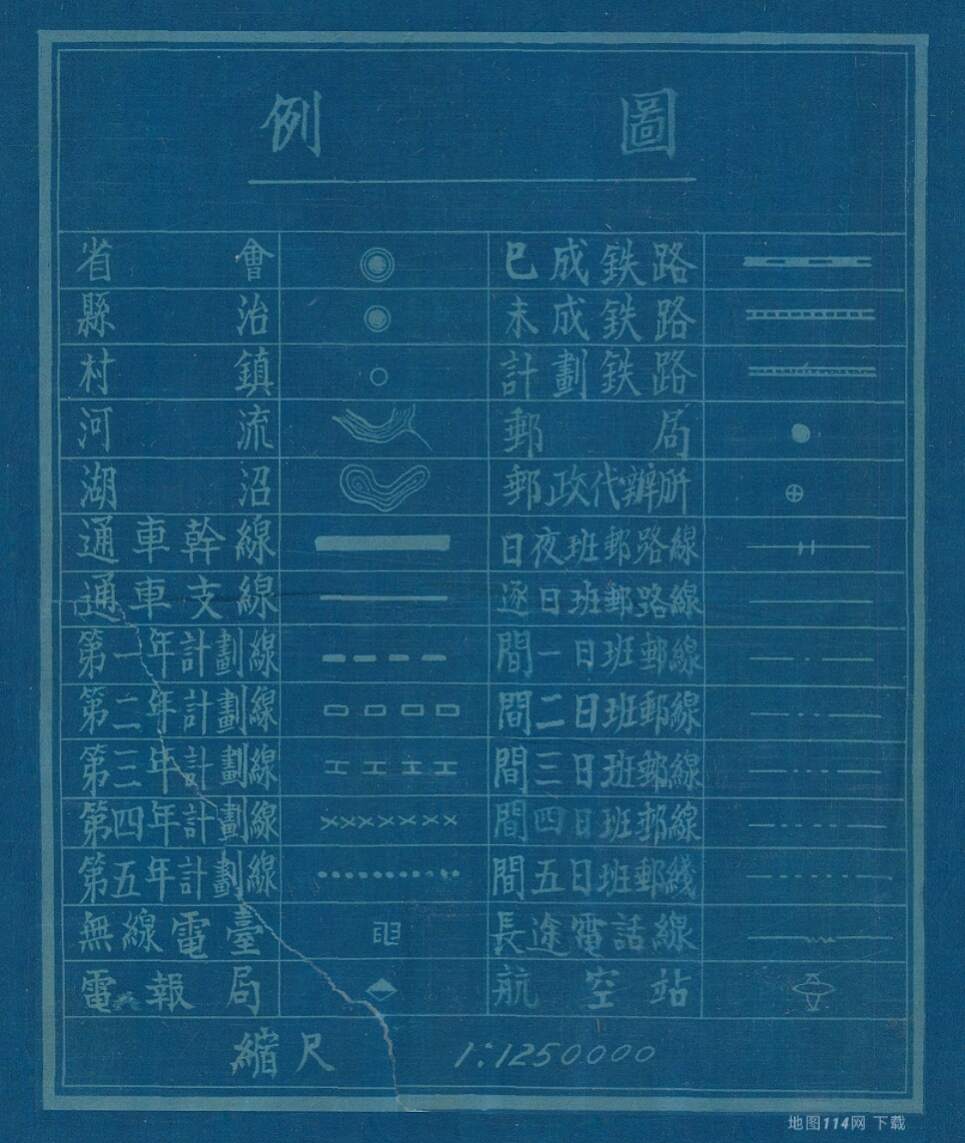 圖例
省會
縣治
村鎮
河流
湖沼
通車幹線
通車支線
第一年計劃線
第二年計劃線
第三年計劃線
第四年計劃線
第五年計劃線
無線電臺
電報局
已成鉄路
未成鉄路
計劃鉄路
郵局
郵政代辦所
日夜班郵路線
逐日班郵路線
間一日班郵線
間二日班郵線
間三日班郵線
間四日班郵線
間五日班郵綫
長途電話線
航空站
縮尺 1:1250000
地图114网 下载